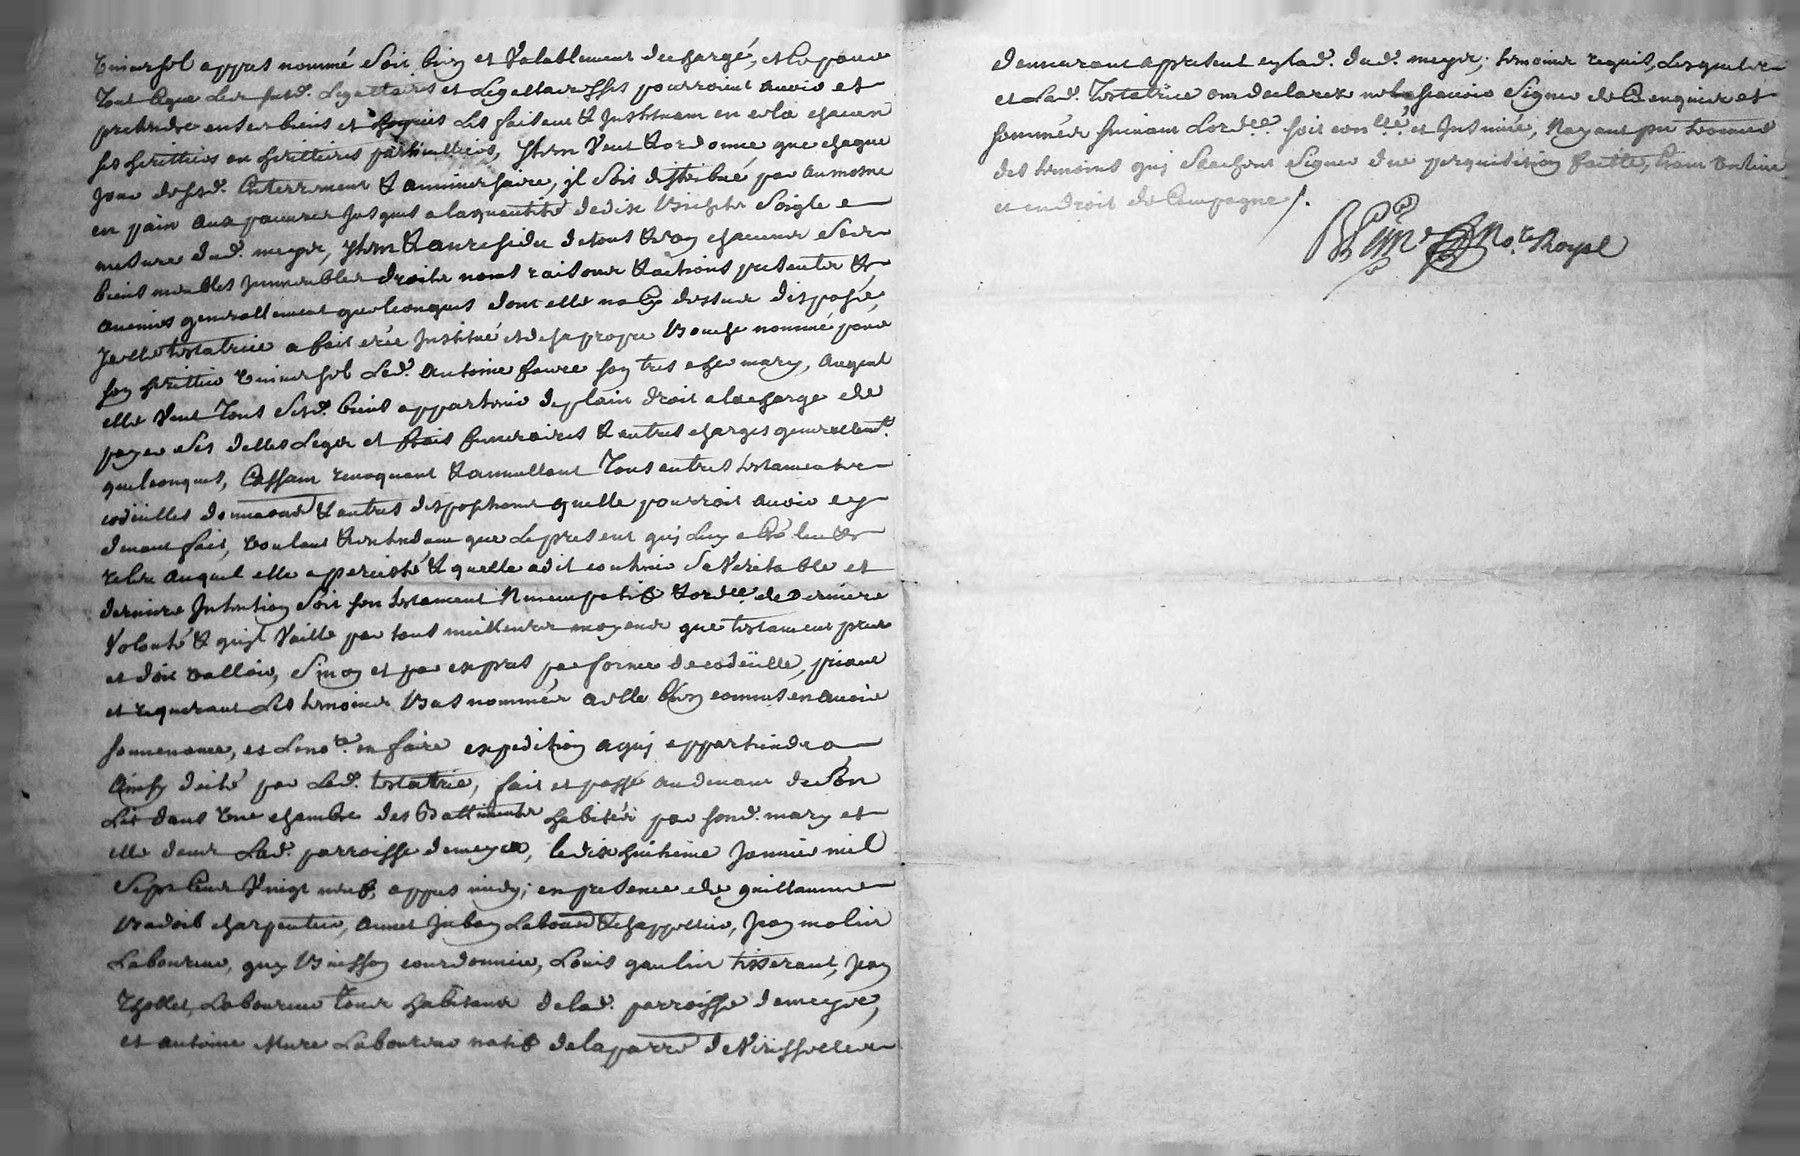 universel appres nommé soit bien et valablement dechargé, et ce pour
tout ce que les susd. legattaires et legettairesses pourroient avoir et
pretendre en ses biens et hoyries les faisant & instituant en cela chacun
ses heritiers ou heritieres particulliers, Item veut & ordonne que chaque
jour desd. enterrement & anniversaire, il soit distribué par aumosne
en pain aux pauvres jusques a la quantité de dix bichets soigle
mesure dud. meyre, Item & au residu de tous & un chacuns ses
biens meubles immeubles droits noms raisons & actions presents &
avenirs generallement quelconques dont elle n'a cy dessus disposé,
ycelle testatrice a fait creé institué et de sa propre bouche nommé pour
son herittier universel led. antoine faure son tres cher mary, auquel
elle veut tous sesd. biens appartenir de plain droit a la charge de
payer ses dettes legts et frais funeraires & autres charges generallemt.
quelconques, cassant revoquant & annullant tous autres testaments
codicilles donnaons & autres dispositions quelle pourroit avoir cy
devant fait, voulant & entendant que le present quy luy a eté leu &
releu auquel elle a percisté & quelle a dit contenir sa veritable et
derniere intention soit son testament nuncupatif & ordce. de derniere
volonté & quil vaille par tous meilleurs moyens que testament peut
et doit valloir, sinon et par expres par forme de codicille, priant
et requerant les temoins bas nommés a elle bien connus en avoir
souvenance, et le nore. en faire expedition a quy appartiendra
ainsy dicté par lad. testatrice, fait et passé au devant de son
lit dans une chambre des battiments habités par sond. mary et
elle dans lad. parroisse de meyre, le dix huitieme janvier mil
sept cent vingt neuf, appres midy; en presence de guillaume
badoil charpentier, annet juban laboureur & chappellier, jean molin
laboureur, guy buisson courdonnier, louis gaulin tisserant, jean
thollet, laboureur tous habitants de lad. parroisse de meyre,
et antoine mure laboureur natif de la parre. de virissettes
demeurant a present en lad. dud. meyre; temoins requis, lesquels
et lad. testatrice ont declarer ne sçavoir signer de ce enquis et
sommés suivant lordce. soit conllé. et insinué, nayant peu trouver
des temoins quy scachent signer due perquisition faitte,
et endroit de campagne /.
Nore. Royal